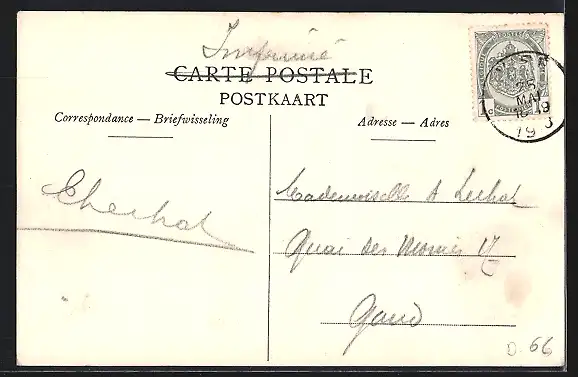 Imprimé
CARTE POSTALE
POSTKAART
Correspondance — Briefwisseling
Adresse — Adres
25
MAI
19
Mademoiselle A
Quai des Moines 17
Gand
D. 66